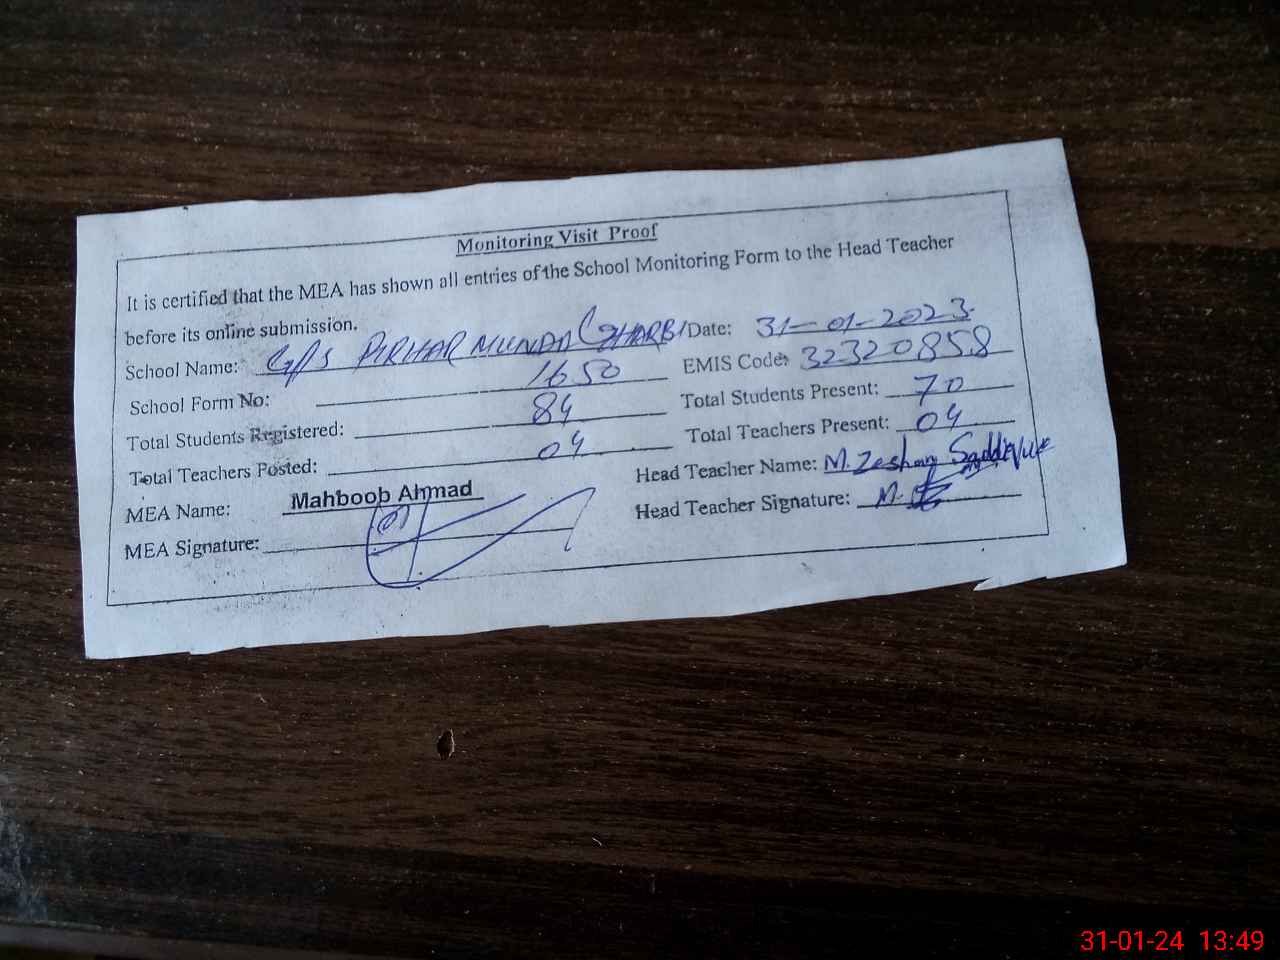 Monitoring Visit Proof
It is certified that the MEA has shown all entries of the School Monitoring Form to the Head Teacher
before its online submission.
School Name: G/P/S PIRHAR MUNDA GHARBI Date: 31-01-2023
School Form No: 1650 EMIS Code: 32320858
Total Students Registered: 84 Total Students Present: 70
Total Teachers Posted: 04 Total Teachers Present: 04
MEA Name: Mahboob Ahmad Head Teacher Name: M. Zeshan
MEA Signature: Head Teacher Signature:
31-01-24 13:49